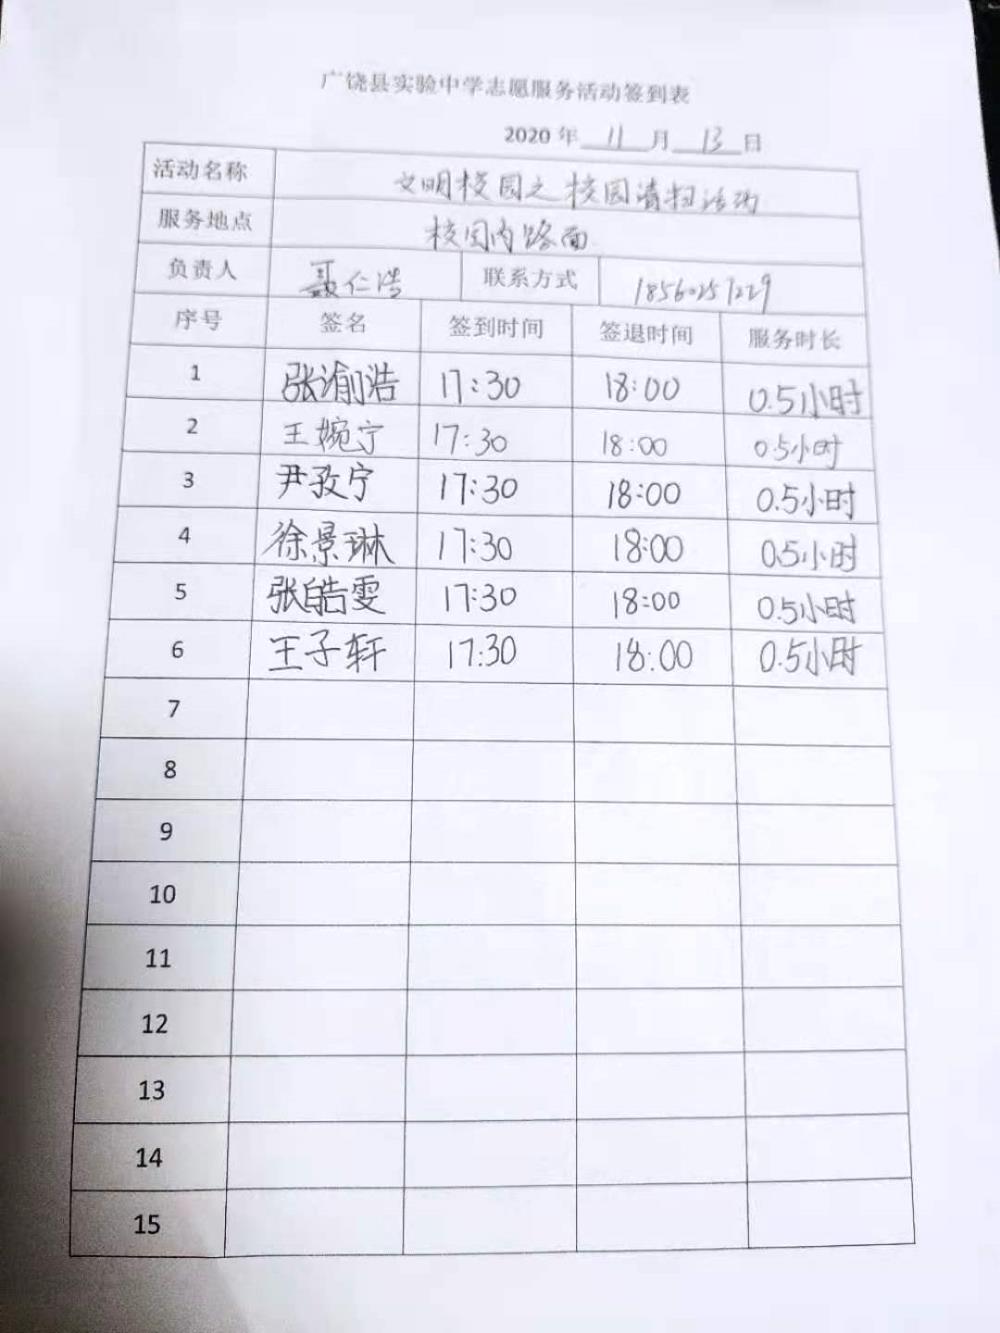 广饶县实验中学志愿服务活动签到表
2020 年 11 月 13 日
活动名称 文明校园之校园清扫活动
服务地点 校园内路面
负责人 聂仁浩 联系方式 18560257229
序号 签名 签到时间 签退时间 服务时长
1 张渝浩 17:30 18:00 0.5小时
2 王婉宁 17:30 18:00 0.5小时
3 尹孜宁 17:30 18:00 0.5小时
4 徐景琳 17:30 18:00 0.5小时
5 张皓雯 17:30 18:00 0.5小时
6 王子轩 17:30 18:00 0.5小时
7
8
9
10
11
12
13
14
15